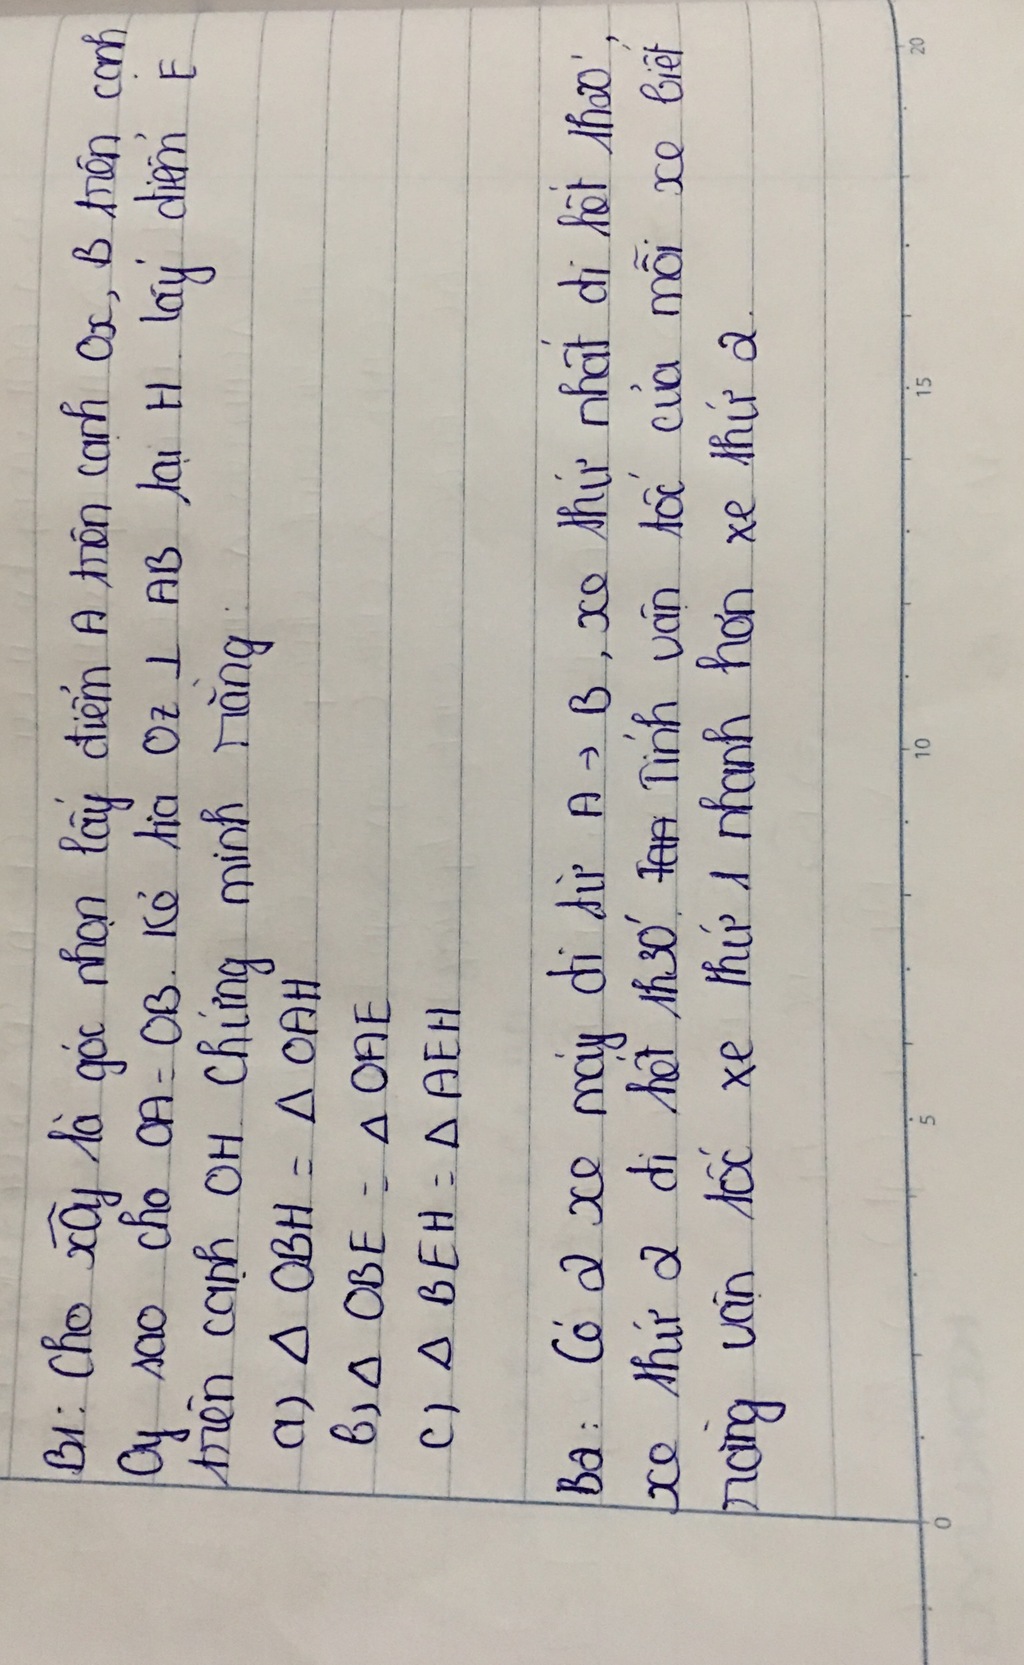 B1: Cho xOy là góc nhọn lấy điểm A trên cạnh Ox, B trên cạnh
Oy sao cho OA = OB. Kẻ tia Oz ⊥ AB tại H lấy điểm E
trên cạnh OH Chứng minh rằng:
a) Δ OBH = Δ OAH
b) Δ OBE = Δ OAE
c) Δ BEH = Δ AEH
B2: Có 2 xe máy đi từ A → B, xe thứ nhất đi hết 1h20',
xe thứ 2 đi hết 1h30'. Tính vận tốc của mỗi xe biết
rằng vận tốc xe thứ 1 nhanh hơn xe thứ 2.
0 5 10 15 20